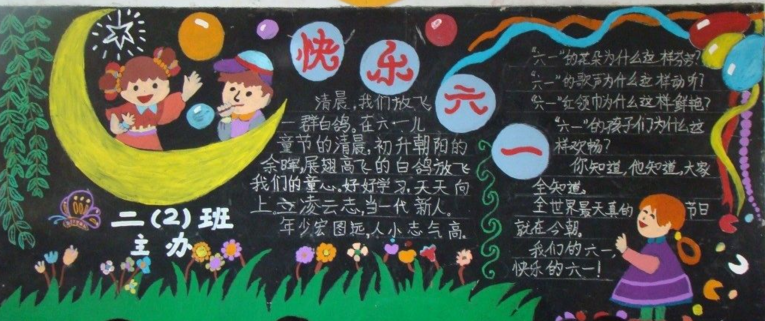 快乐六一
清晨，我们放飞
一群白鸽。在六一儿
童节的清晨，初升朝阳的
余晖，展翅高飞的白鸽放飞
我们的童心。好好学习，天天向
上，立凌云志，当一代新人。
年少宏图远，人小志气高。
二（2）班
主办
“六一”的花朵为什么这样芬芳？
“六一”的歌声为什么这样动听？
“六一”红领巾为什么这样鲜艳？
“六一”的孩子们为什么这
样欢畅？
你知道，他知道，大家
全知道。
全世界最天真的节日
就在今朝。
我们的六一，
快乐的六一！